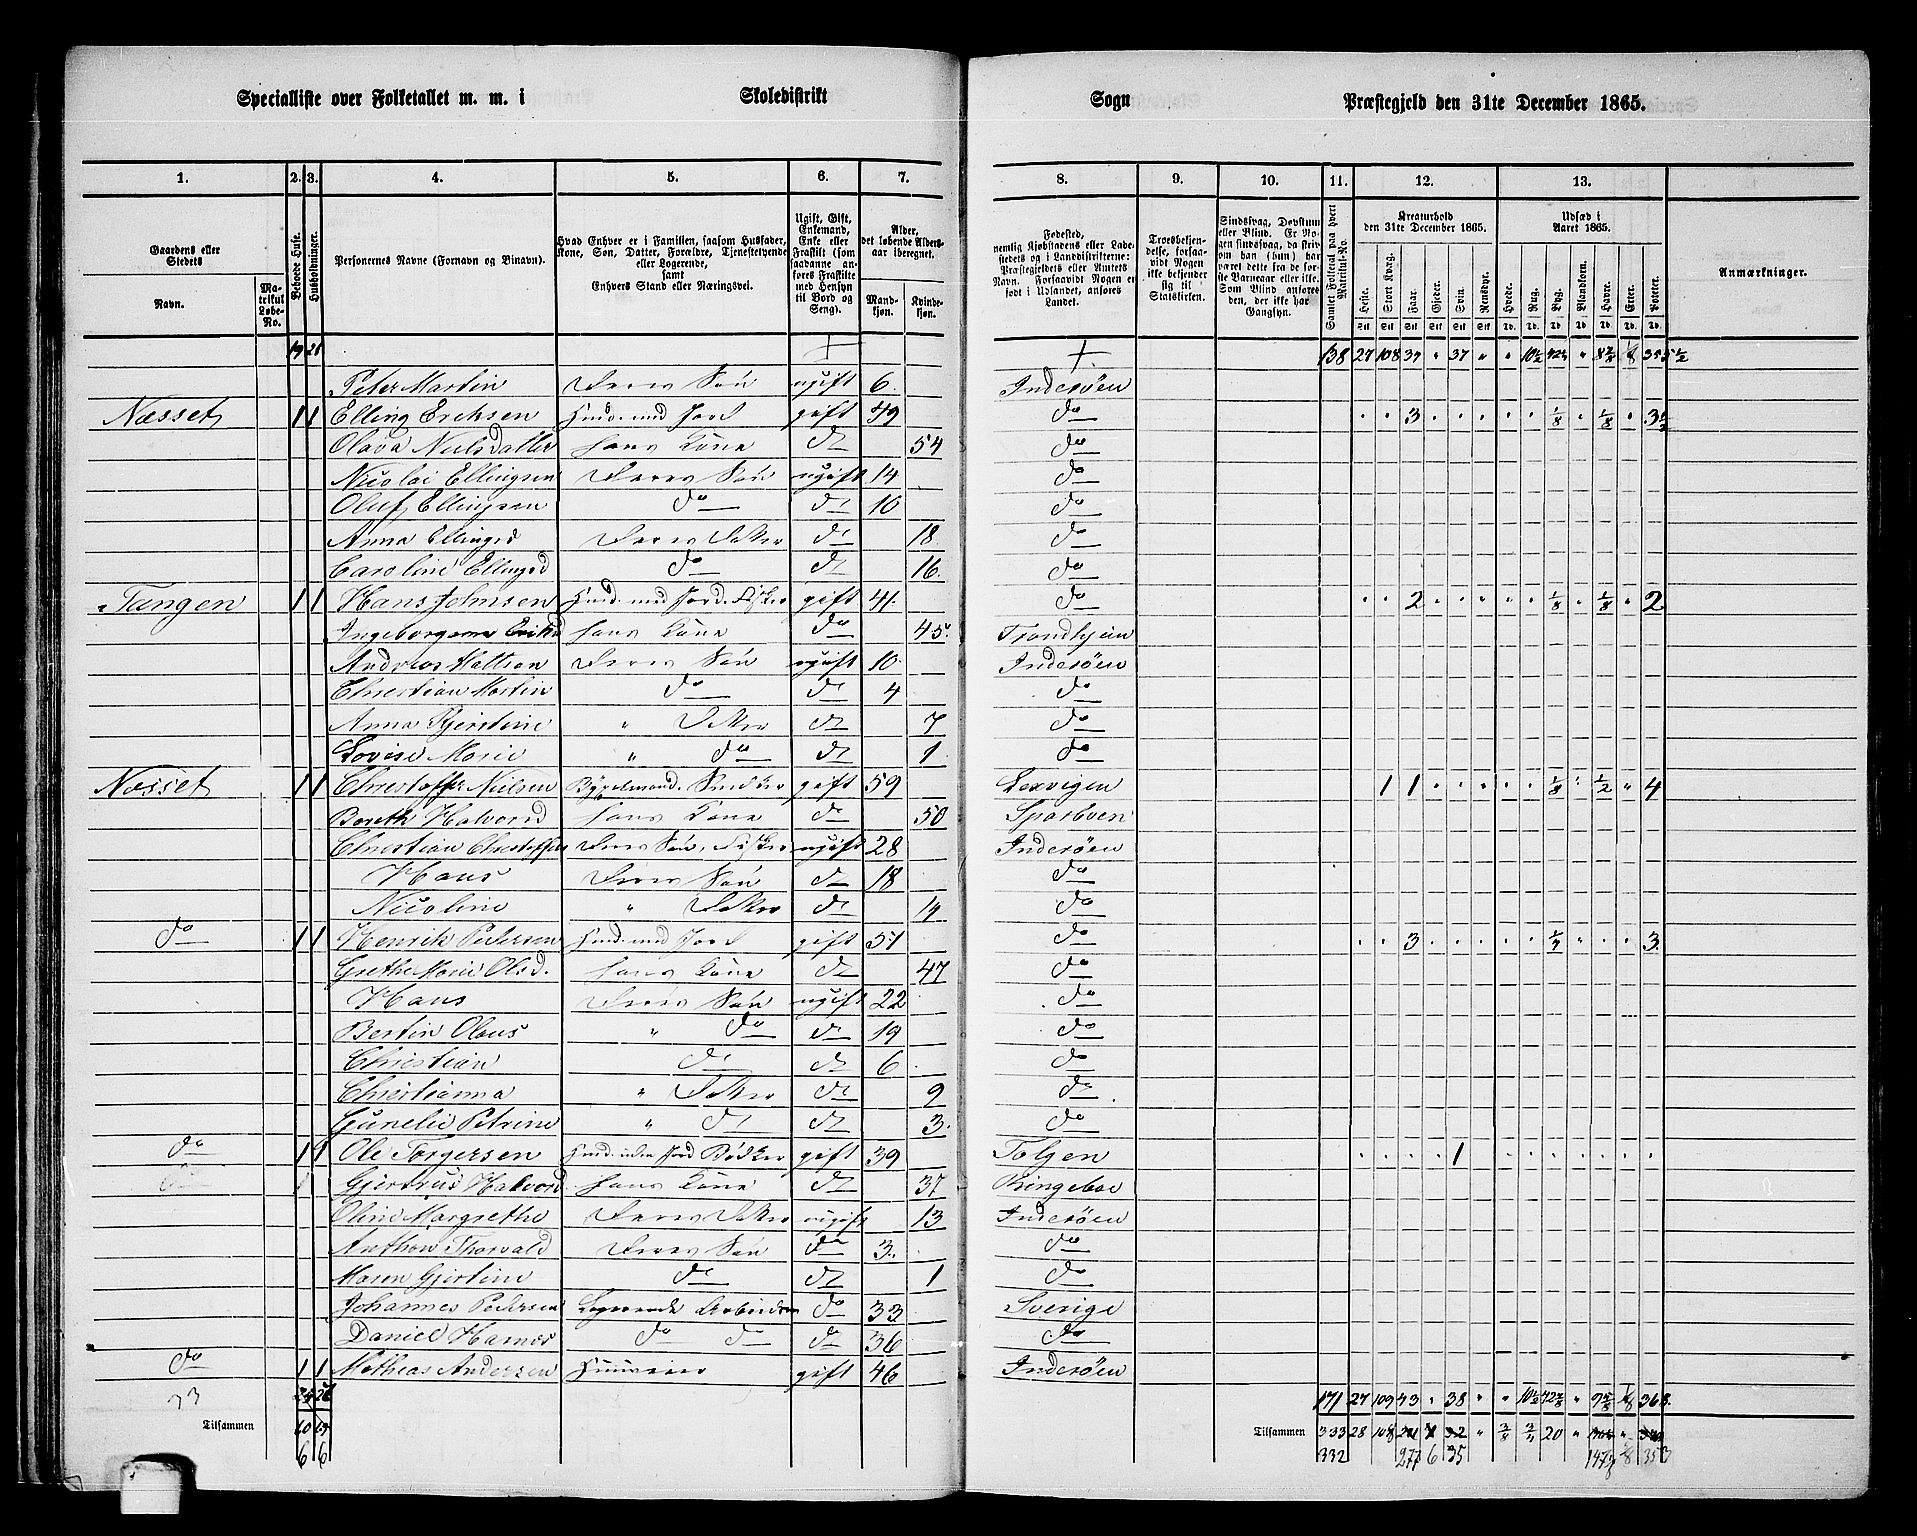 Specialliste over Folketallet m. m. i Skoledistrikt Sogn Præstegjeld den 31te December 1865.
1. 2. 3. 4. 5. 6. 7. 8. 9. 10. 11. 12. 13.
Gaardens eller Stedets
Navn.
Matrikul Løbe-No.
Beboede Huse.
Husholdninger.
Personernes Navne (Fornavn og Binavn).
Hvad Enhver er i Familien, saasom Husfader, Kone, Søn, Datter, Forældre, Tjenestetyende eller Logerende,
samt
Enhvers Stand eller Næringsvei.
Ugift, Gift, Enkemand, Enke eller Fraskilt (som saadanne anføres Fraskilte med Hensyn til Bord og Seng).
Alder, det løbende Aldersaar iberegnet.
Mandkjøn.
Kvindekjøn.
Fødested,
nemlig Kjøbstadens eller Ladestedets og i Landdistrikterne: Præstegjeldets eller Amtets Navn. Forsaavidt Nogen er født i Udlandet, anføres Landet.
Troesbekjendelse, forsaavidt Nogen ikke bekjender sig til Statskirken.
Sindssvag, Døvstum eller Blind. Er Nogen sindssvag, da skrives om han (hun) har været dette fra de første Barneaar eller ikke. Som Blind anføres den, der ikke har Gangsyn.
Samlet Folketal paa hvert Matrikul-No.
Kreaturhold den 31te December 1865.
Heste. Stort Kvæg. Faar. Gjeder. Svin. Rensdyr.
Udsæd i Aaret 1865.
Hvede. Rug. Byg. Blandkorn. Havre. Erter. Poteter.
Anmærkninger.
138 27 108 37 " 37 " "
Peter Martin Deres Søn ugift 6. Inderøen
Næsset 1 1 Elling Erichsen Husd. med Jord gift 49 do 3 1/8 1/8 3 1/2
Olava Nielsdatter hans Kone do 54 do
Nicolai Ellingsen Deres Søn ugift 14 do
Oluf Ellingsen do do 10 do
Anna Ellingsd Deres Datter do 18 do
Caroline Ellingsd do do 16. do
Tangen 1 1 Hans Johnsen Husd. med Jord. Fisker gift 41. do 2 1/8 1/8 2
hans Kone do 45. Trondhjem
Andreas Deres Søn ugift 10. Inderøen
Christian Martin do do 4 do
Anna Kjerstine " Datter do 7 do
Lovise Marie " do do 1. do
Næsset 1 1 Christoffer Nielsen Snedker gift 59 Lexvigen 1 1 1/8 1/2 4
Bereth Halvorsd hans Kone do 50 Sparboen
Christian Christoffers Deres Søn, Fisker ugift 28 Inderøen
Hans Deres Søn do 18 do
Nicoline " Datter do 14 do
do 1 1 Henrik Pedersen Husd. med Jord gift 51 do 3 1/4 3.
Grethe Marie Olsd. hans Kone do 47 do
Hans Deres Søn ugift 22 do
Bertin Olaus " do do 19 do
Christian do do 6 do
Christianna " Datter do 9 do
Gunelie Petrine " do do 3. do
do 1 1 Ole Torgersen Husd. uden Jord Bødker gift 39 Tolgen 1
Gjertrus Halvord. hans Kone do 37 Ringeboe
Oline Margrethe Deres Datter ugift 13 Inderøen
Anthon Thorvald Deres Søn do 3. do
Maren Gjertine do do 1 do
Johannes Pedersen Logerende Arbeidsm do 33 Sverige
Daniel do do do 36 do
do 1 1 Mathias Andersen gift 46 Inderøen
33 171 27 109 43 " 38 " " 368.
Tilsammen 60 69 Tilsammen 333 28 108 32 " 20 "
6 6 332 277 6 35 353